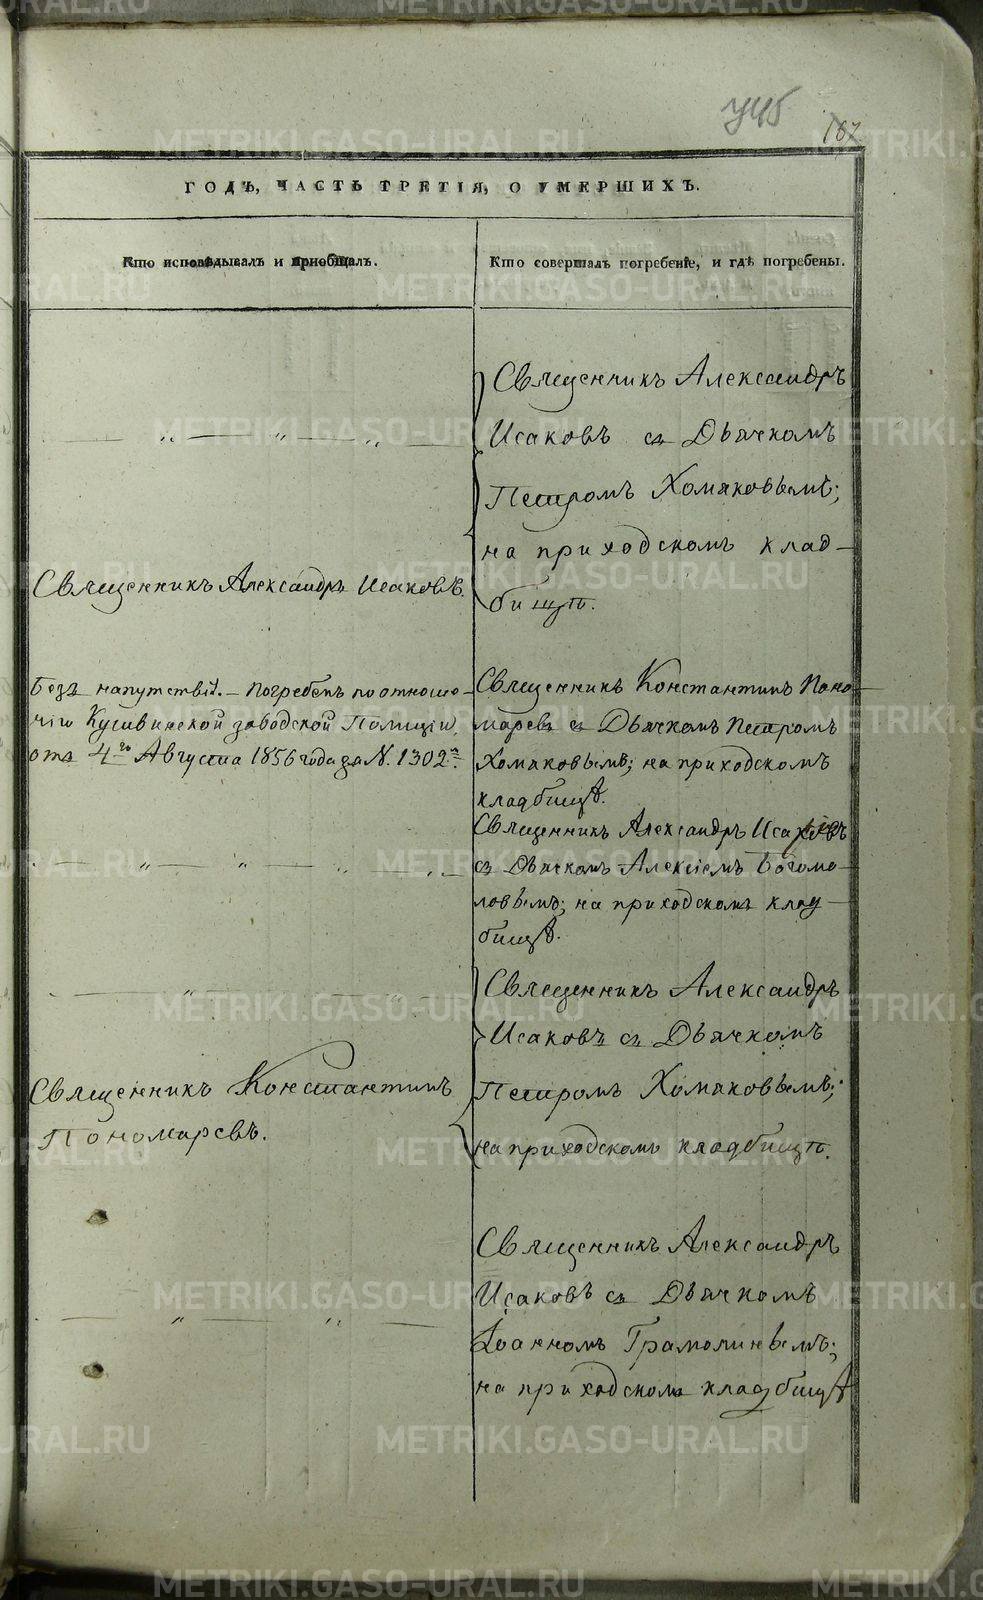 445
187
ГОДЪ, ЧАСТЬ ТРЕТІЯ, О УМЕРШИХЪ.
Кто исповѣдывалъ и пріобщалъ.
Кто совершалъ погребеніе, и гдѣ погребены.
Священникъ Александръ
Исаковъ съ Дьячкомъ
Петромъ Хомяковымъ;
на приходскомъ клад-
бищѣ.
Священникъ Александръ Исаковъ.
Безъ напутствія. – Погребенъ по отноше-
нію Кушвинской заводской Полиціи,
отъ 4го Августа 1856 года за N. 1302мъ.
Священникъ Константинъ Поно-
маревъ съ Дьячкомъ Петромъ
Хомяковымъ; на приходскомъ
кладбищѣ.
Священникъ Александръ Исаковъ
съ Дьячкомъ Алексіемъ Богомо-
ловымъ; на приходскомъ клад-
бищѣ.
Священникъ Александръ
Исаковъ съ Дьячкомъ
Петромъ Хомяковымъ;
на приходскомъ кладбищѣ.
Священникъ Константинъ
Пономаревъ.
Священникъ Александръ
Исаковъ съ Дьячкомъ
Іоанномъ Грамолинымъ;
на приходскомъ кладбищѣ
METRIKI.GASO-URAL.RU